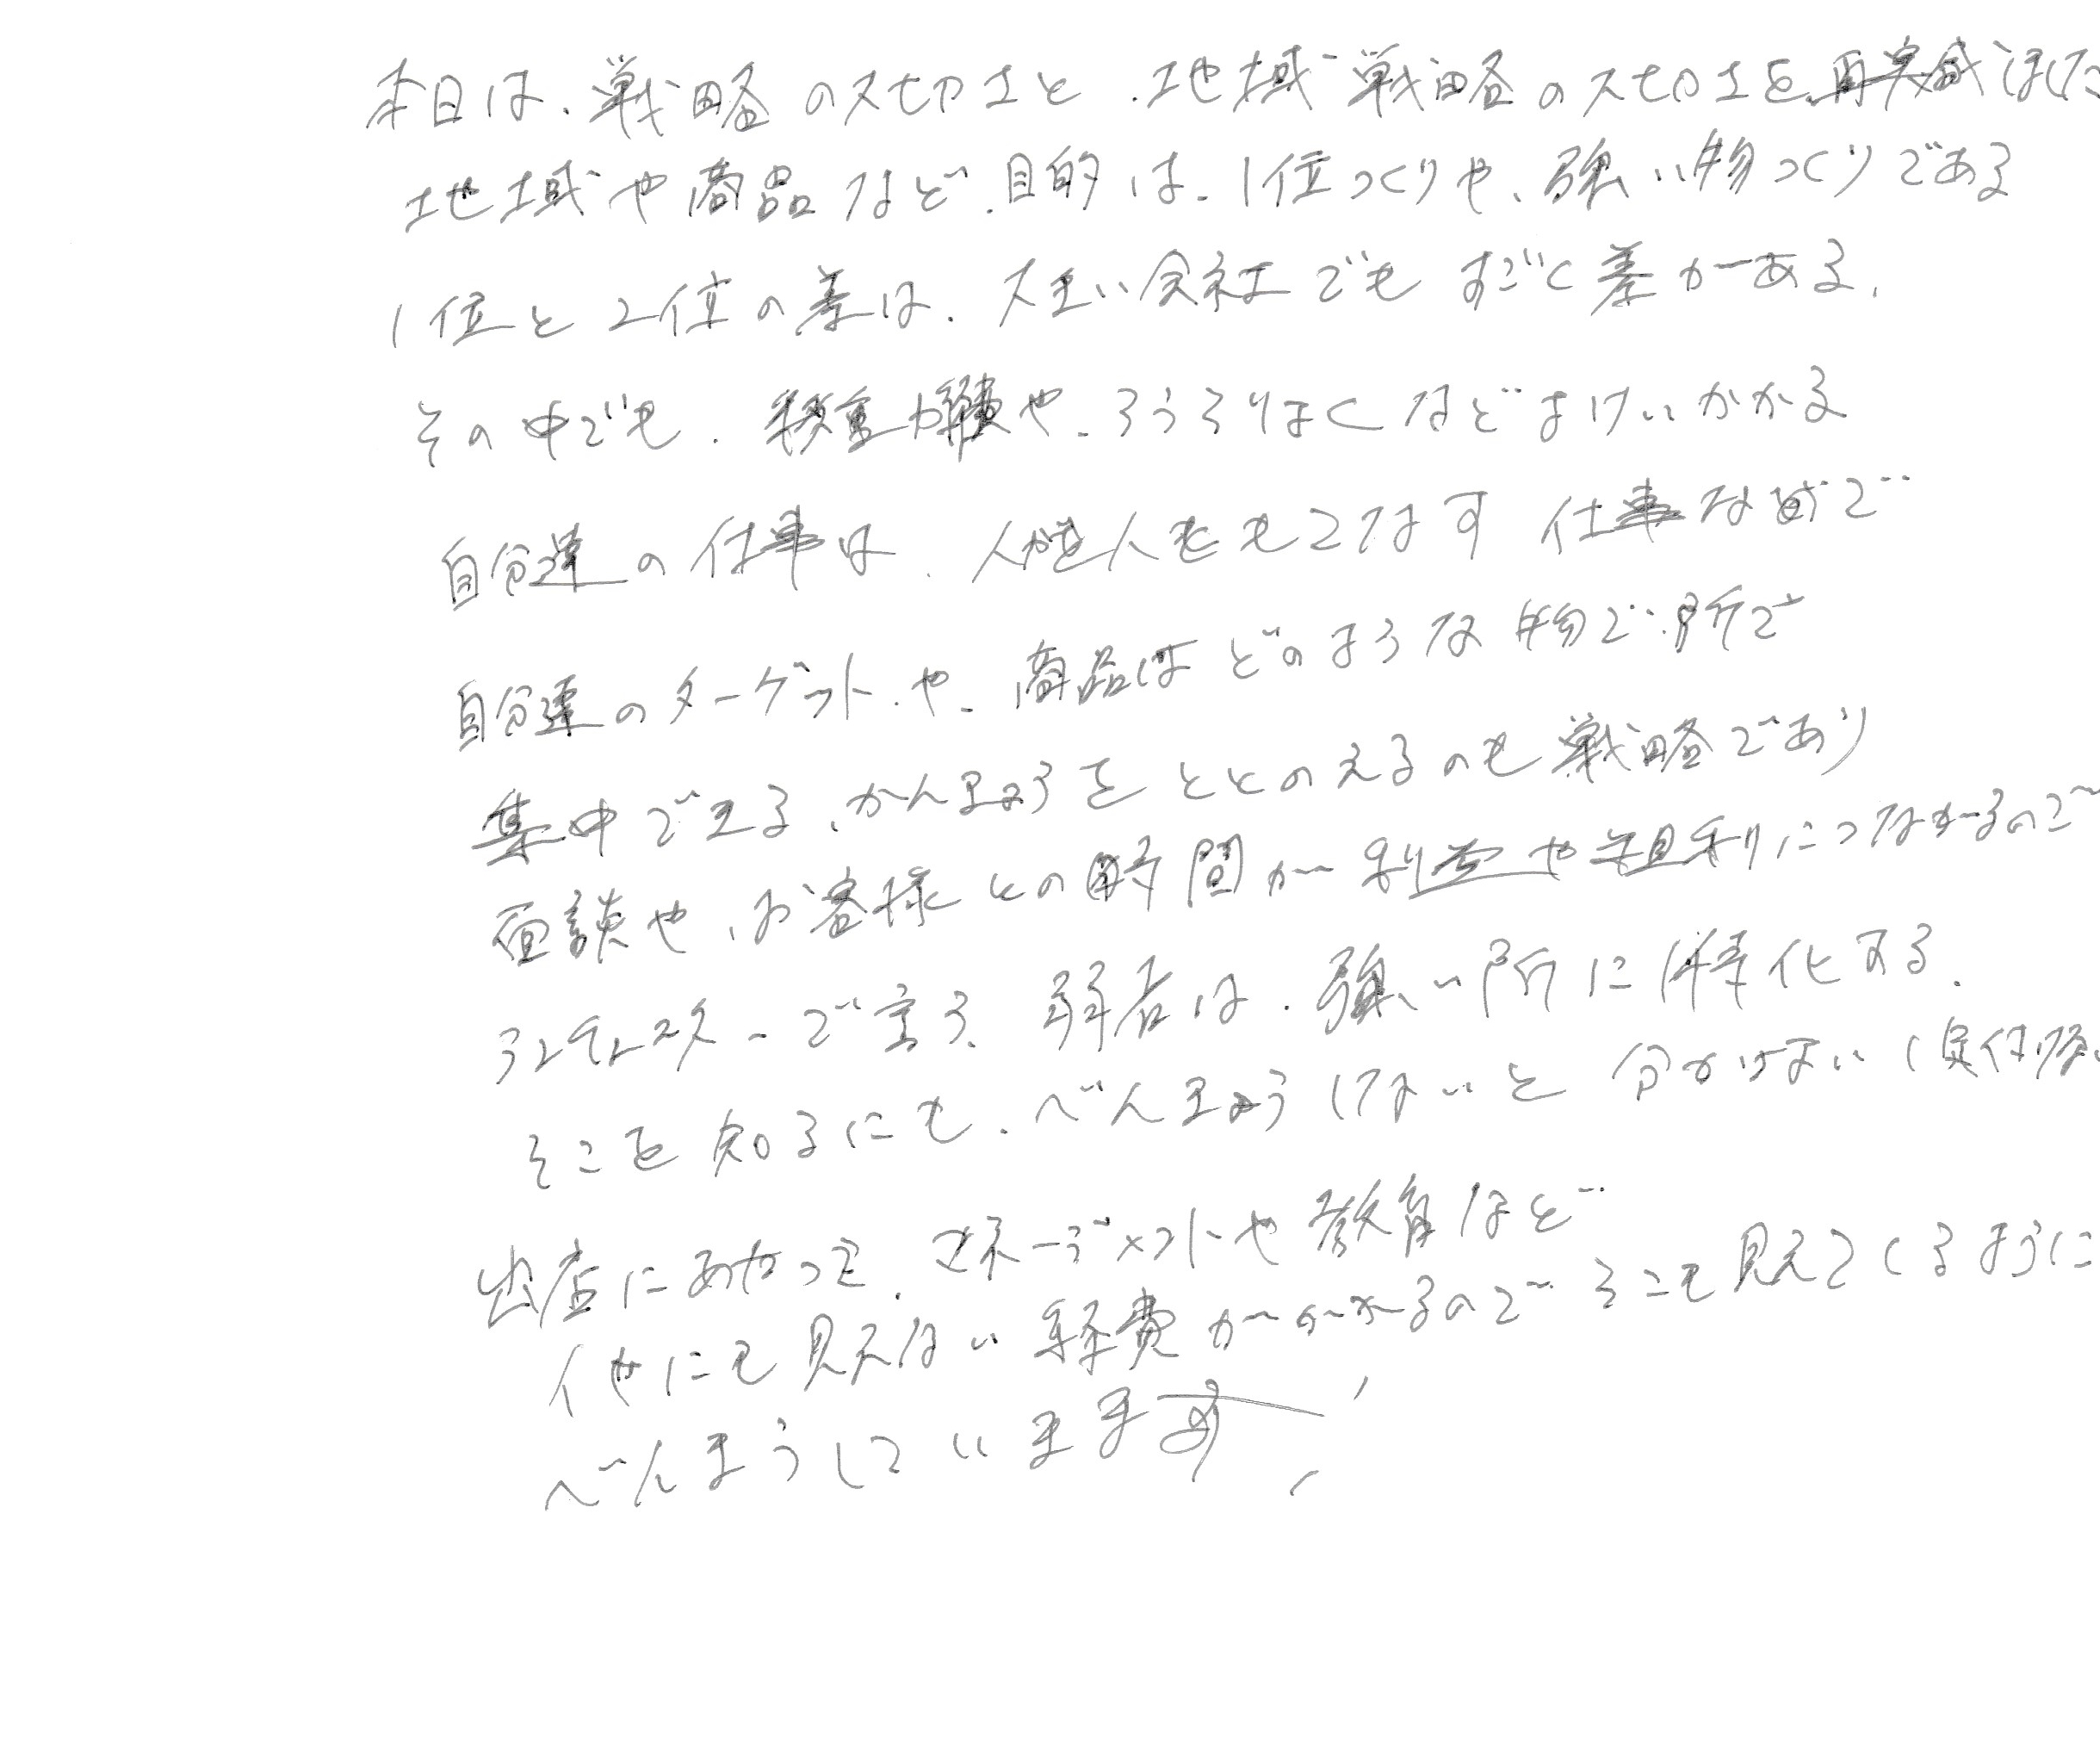 本日は、戦略の大切さと、地域戦略の大切さを再実感しました
地域や商品など、目的は、1位づくりや、強い物づくりである
1位と2位の差は、大きい会社でもすごく差がある、
その中でも、移動 や、ろうそりょくなどよけいかかる
自分達の仕事は、人が人をもてなす仕事なので
自分達のターゲットや、商品はどのような物で、所で
集中できる、かんきょうをととのえるのも戦略であり
面談や、お客様との時間が利益や粗利につながるので
ランチェスターで言う、弱者は、強い所に特化する、
そこを知るにも、べんきょうしないと分からない
出店にあたって、マネージメントや教育など
他にも見えない経費がかかるのでそこも見えてくるように
べんきょうしていきます